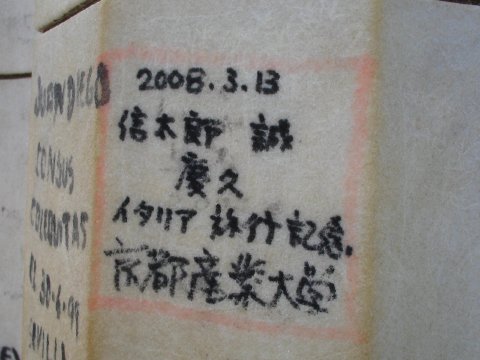 2008.3.13
信太郎 誠
慶久
イタリア 旅行記念.
京都産業大学
JUAN DIEGO
CENSUS
30-6-99
SEVILLA